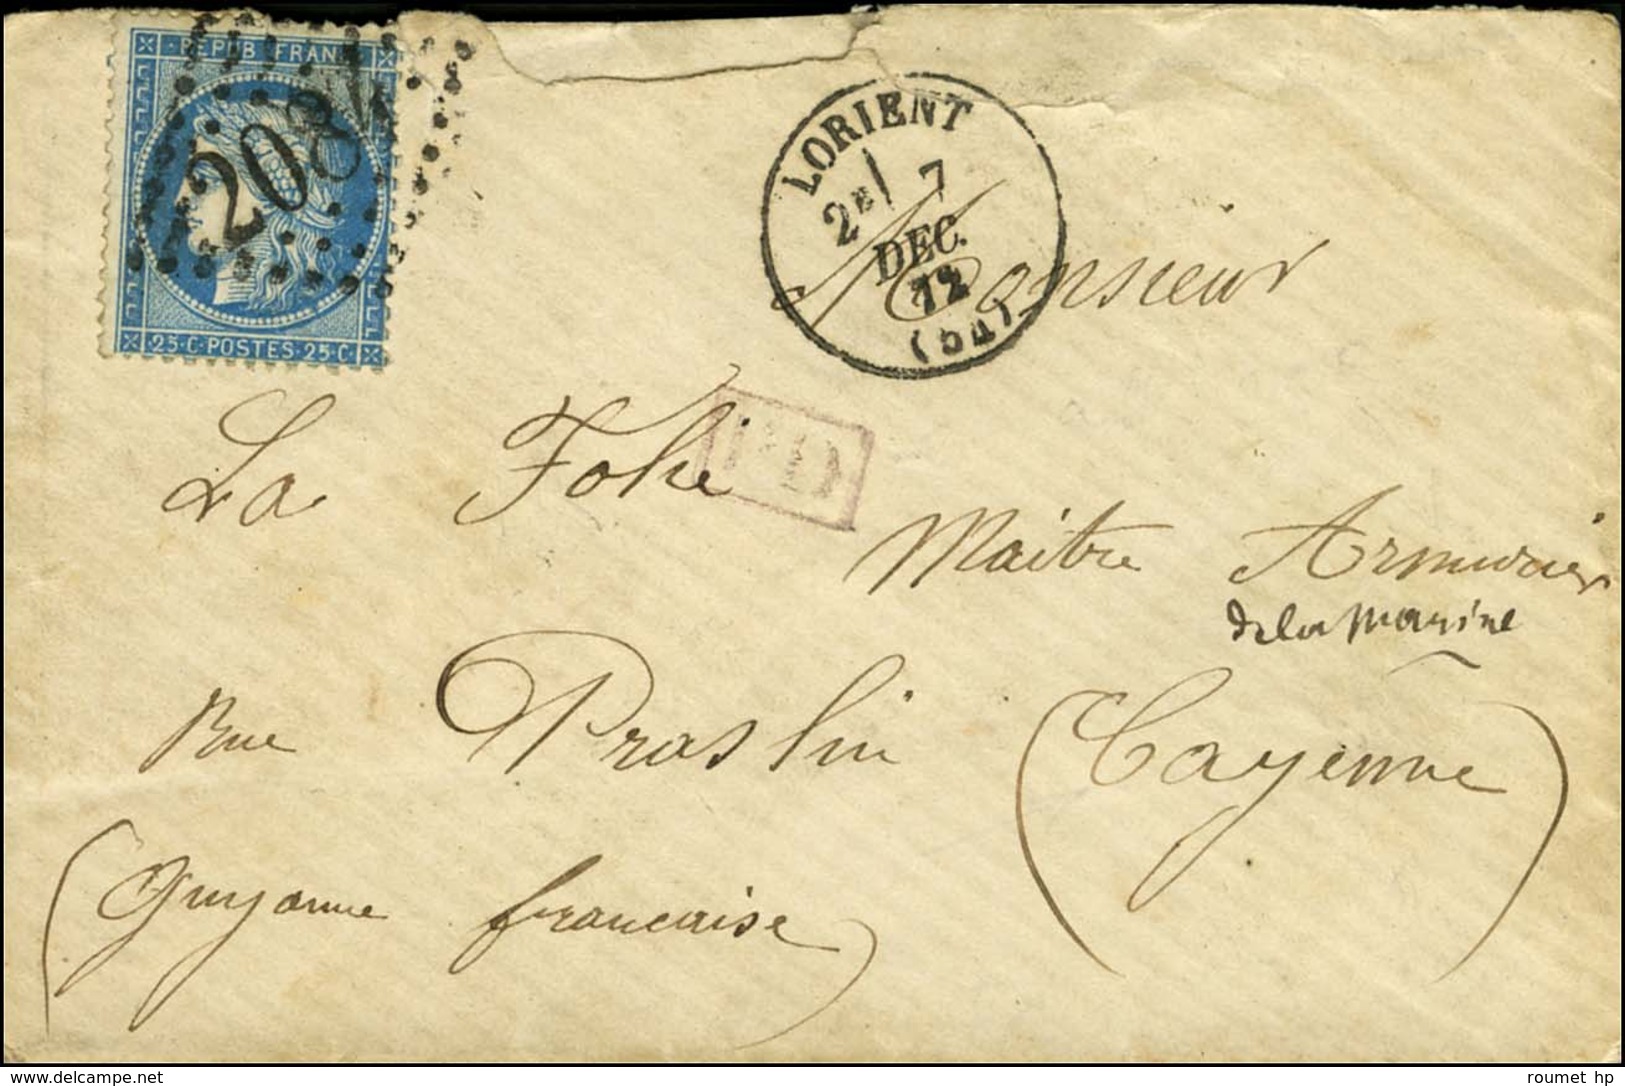 REPUB FRANC
2084
25·C·POSTES·25·C
LORIENT
2E 7
DEC.
72
(54)
Monsieur
PD
La Folie
Maitre Armurier
de la Marine
Rue Praslin (Cayenne)
(Guyanne francaise)
roumet hp